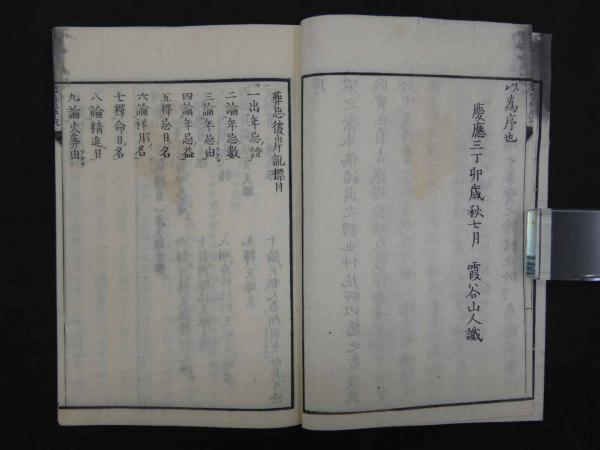 以為序也
慶應三丁卯歳秋七月　霞谷山人識
葬忌彼岸記標目
一出年忌證
二論年忌數
三論年忌由
四論年忌益
五釋忌日名
六論祥月名
七釋命日名
八論精進日
九論火葬由